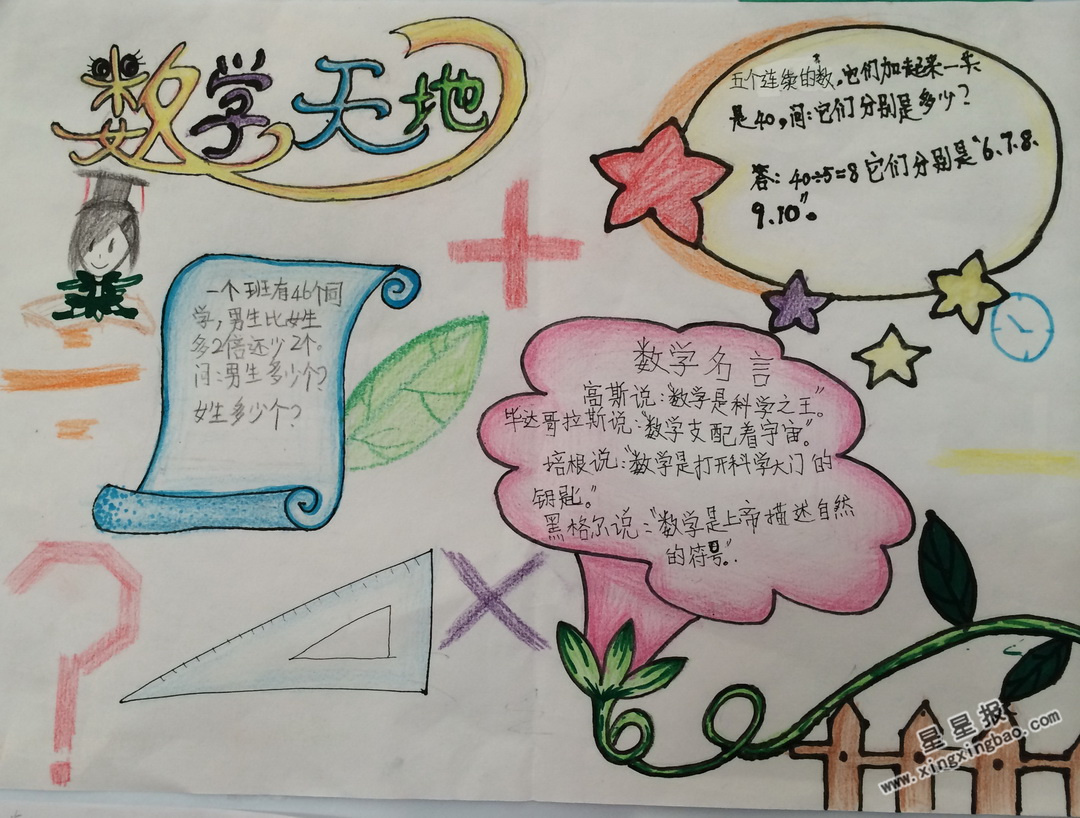 数学天地
五个连续的数,它们加起来一共
是40,问:它们分别是多少?
答:40÷5=8它们分别是“6.7.8.
9.10”。
一个班有46个同
学,男生比女生
多2倍还少2个。
问:男生多少个?
女生多少个?
数学名言
高斯说:“数学是科学之王”。
毕达哥拉斯说:“数学支配着宇宙”。
培根说:“数学是打开科学大门的
钥匙。”
黑格尔说:“数学是上帝描述自然
的符号”.
星星报
www.xingxingbao.com